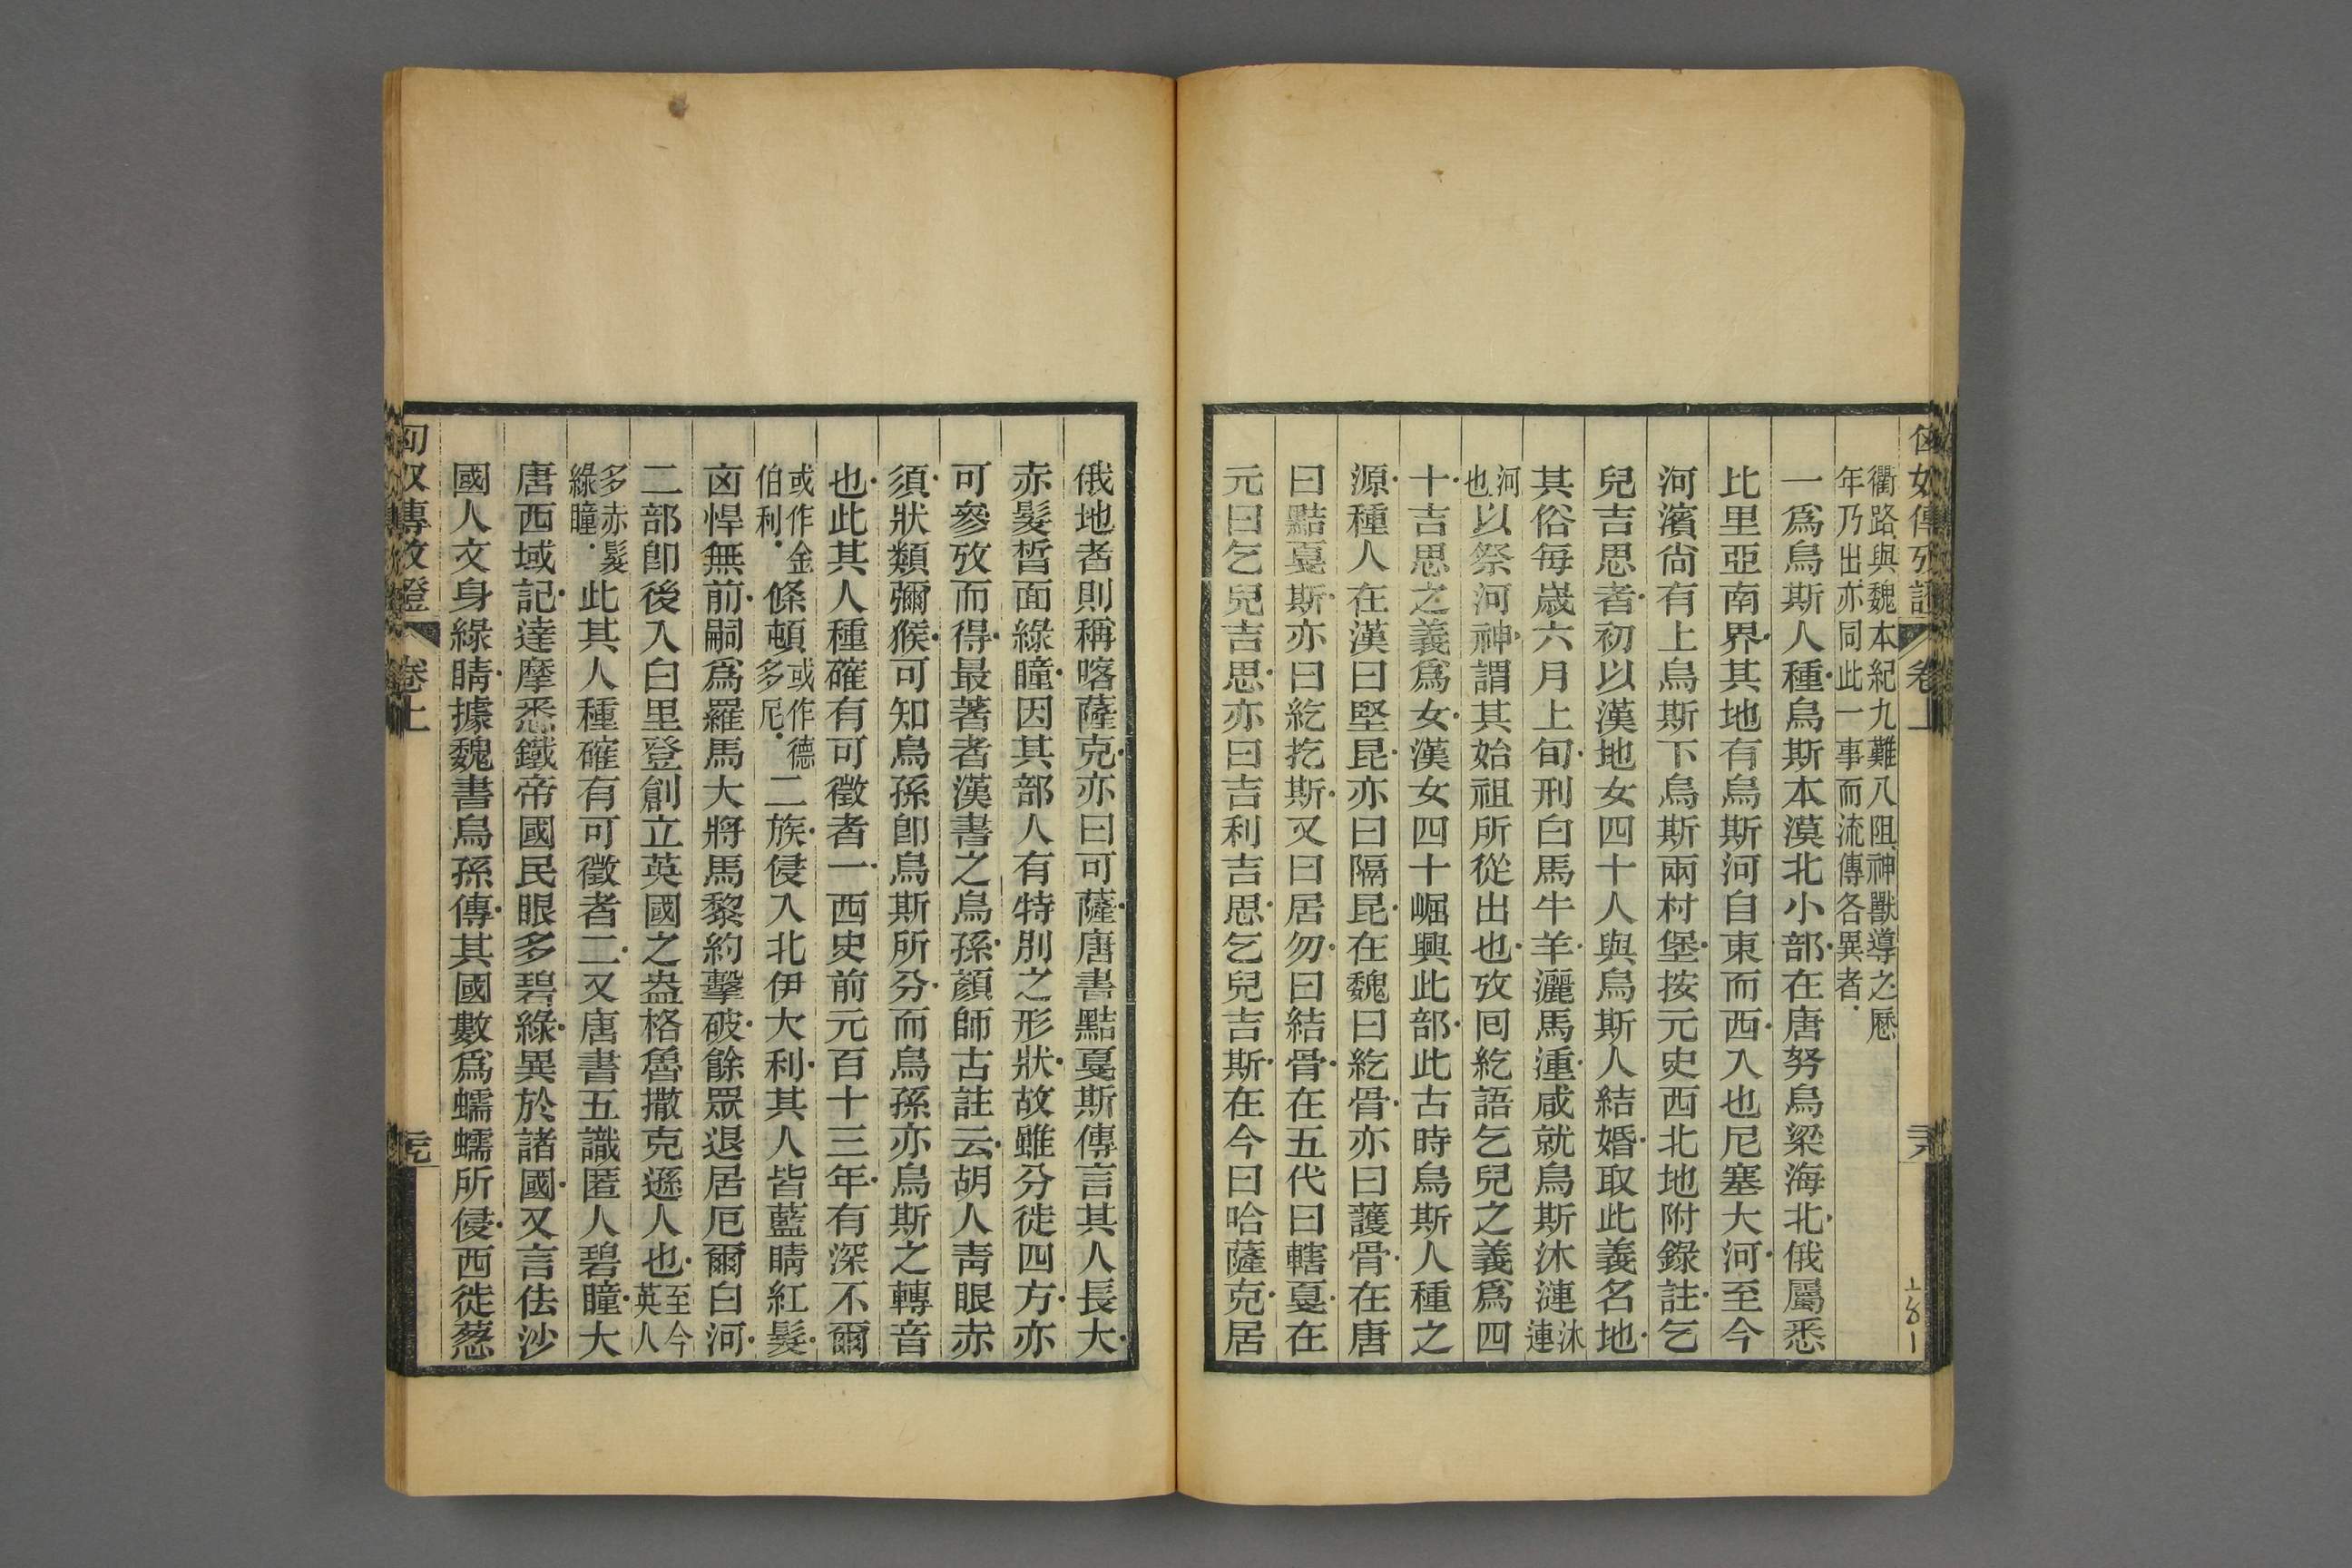 衢路與魏本紀九難八阻神獸導之歷
年乃出亦同此一事而流傳各異者
一爲烏斯人種烏斯本漠北小部在唐努烏梁海北俄屬悉
比里亞南界其地有烏斯河自東而西入也尼塞大河至今
河濱尙有上烏斯下烏斯兩村堡按元史西北地附錄註乞
兒吉思者初以漢地女四十人與烏斯人結婚取此義名地
其俗每歲六月上旬刑白馬牛羊灑馬湩咸就烏斯沐漣沐漣
河也以祭河神謂其始祖所從出也攷囘紇語乞兒之義爲四
十吉思之義爲女漢女四十崛興此部此古時烏斯人種之
源種人在漢曰堅昆亦曰隔昆在魏曰紇骨亦曰護骨在唐
曰黠戛斯亦曰紇扢斯又曰居勿曰結骨在五代曰轄戛在
元曰乞兒吉思亦曰吉利吉思乞兒吉斯在今曰哈薩克居
俄地者則稱喀薩克亦曰可薩唐書黠戛斯傳言其人長大
赤髮晳面綠瞳因其部人有特別之形狀故雖分徙四方亦
可參攷而得最著者漢書之烏孫顏師古註云胡人靑眼赤
須狀類彌猴可知烏孫卽烏斯所分而烏孫亦烏斯之轉音
也此其人種確有可徵者一西史前元百十三年有深不爾
或作金伯利條頓或作德多尼二族侵入北伊大利其人皆藍睛紅髮
囟悍無前嗣爲羅馬大將馬黎約擊破餘眾退居厄爾白河
二部卽後入白里登創立英國之盎格魯撒克遜人也至今英人
多赤髮綠瞳此其人種確有可徵者二又唐書五識匿人碧瞳大
唐西域記達摩悉鐵帝國民眼多碧綠異於諸國又言佉沙
國人文身綠睛據魏書烏孫傳其國數爲蠕蠕所侵西徙蔥
匈奴傳攷證 卷上